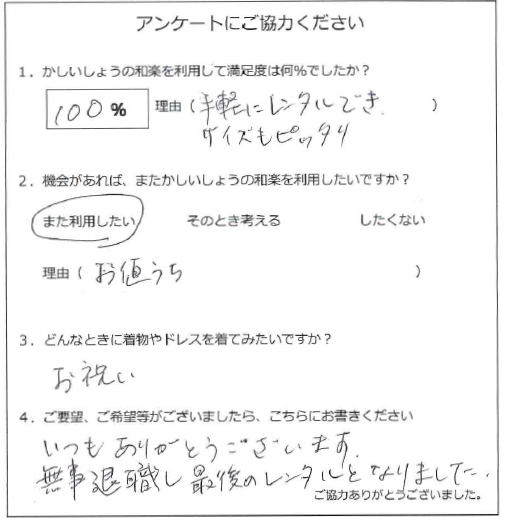 アンケートにご協力ください
1．かしいしょうの和楽を利用して満足度は何%でしたか？
100% 理由（手軽にレンタルでき、）
サイズもピッタリ
2．機会があれば、またかしいしょうの和楽を利用したいですか？
また利用したい そのとき考える したくない
理由（お値うち）
3．どんなときに着物やドレスを着てみたいですか？
お祝い
4．ご要望、ご希望等がございましたら、こちらにお書きください
いつもありがとうございます。
無事退職し最後のレンタルとなりました。
ご協力ありがとうございました。